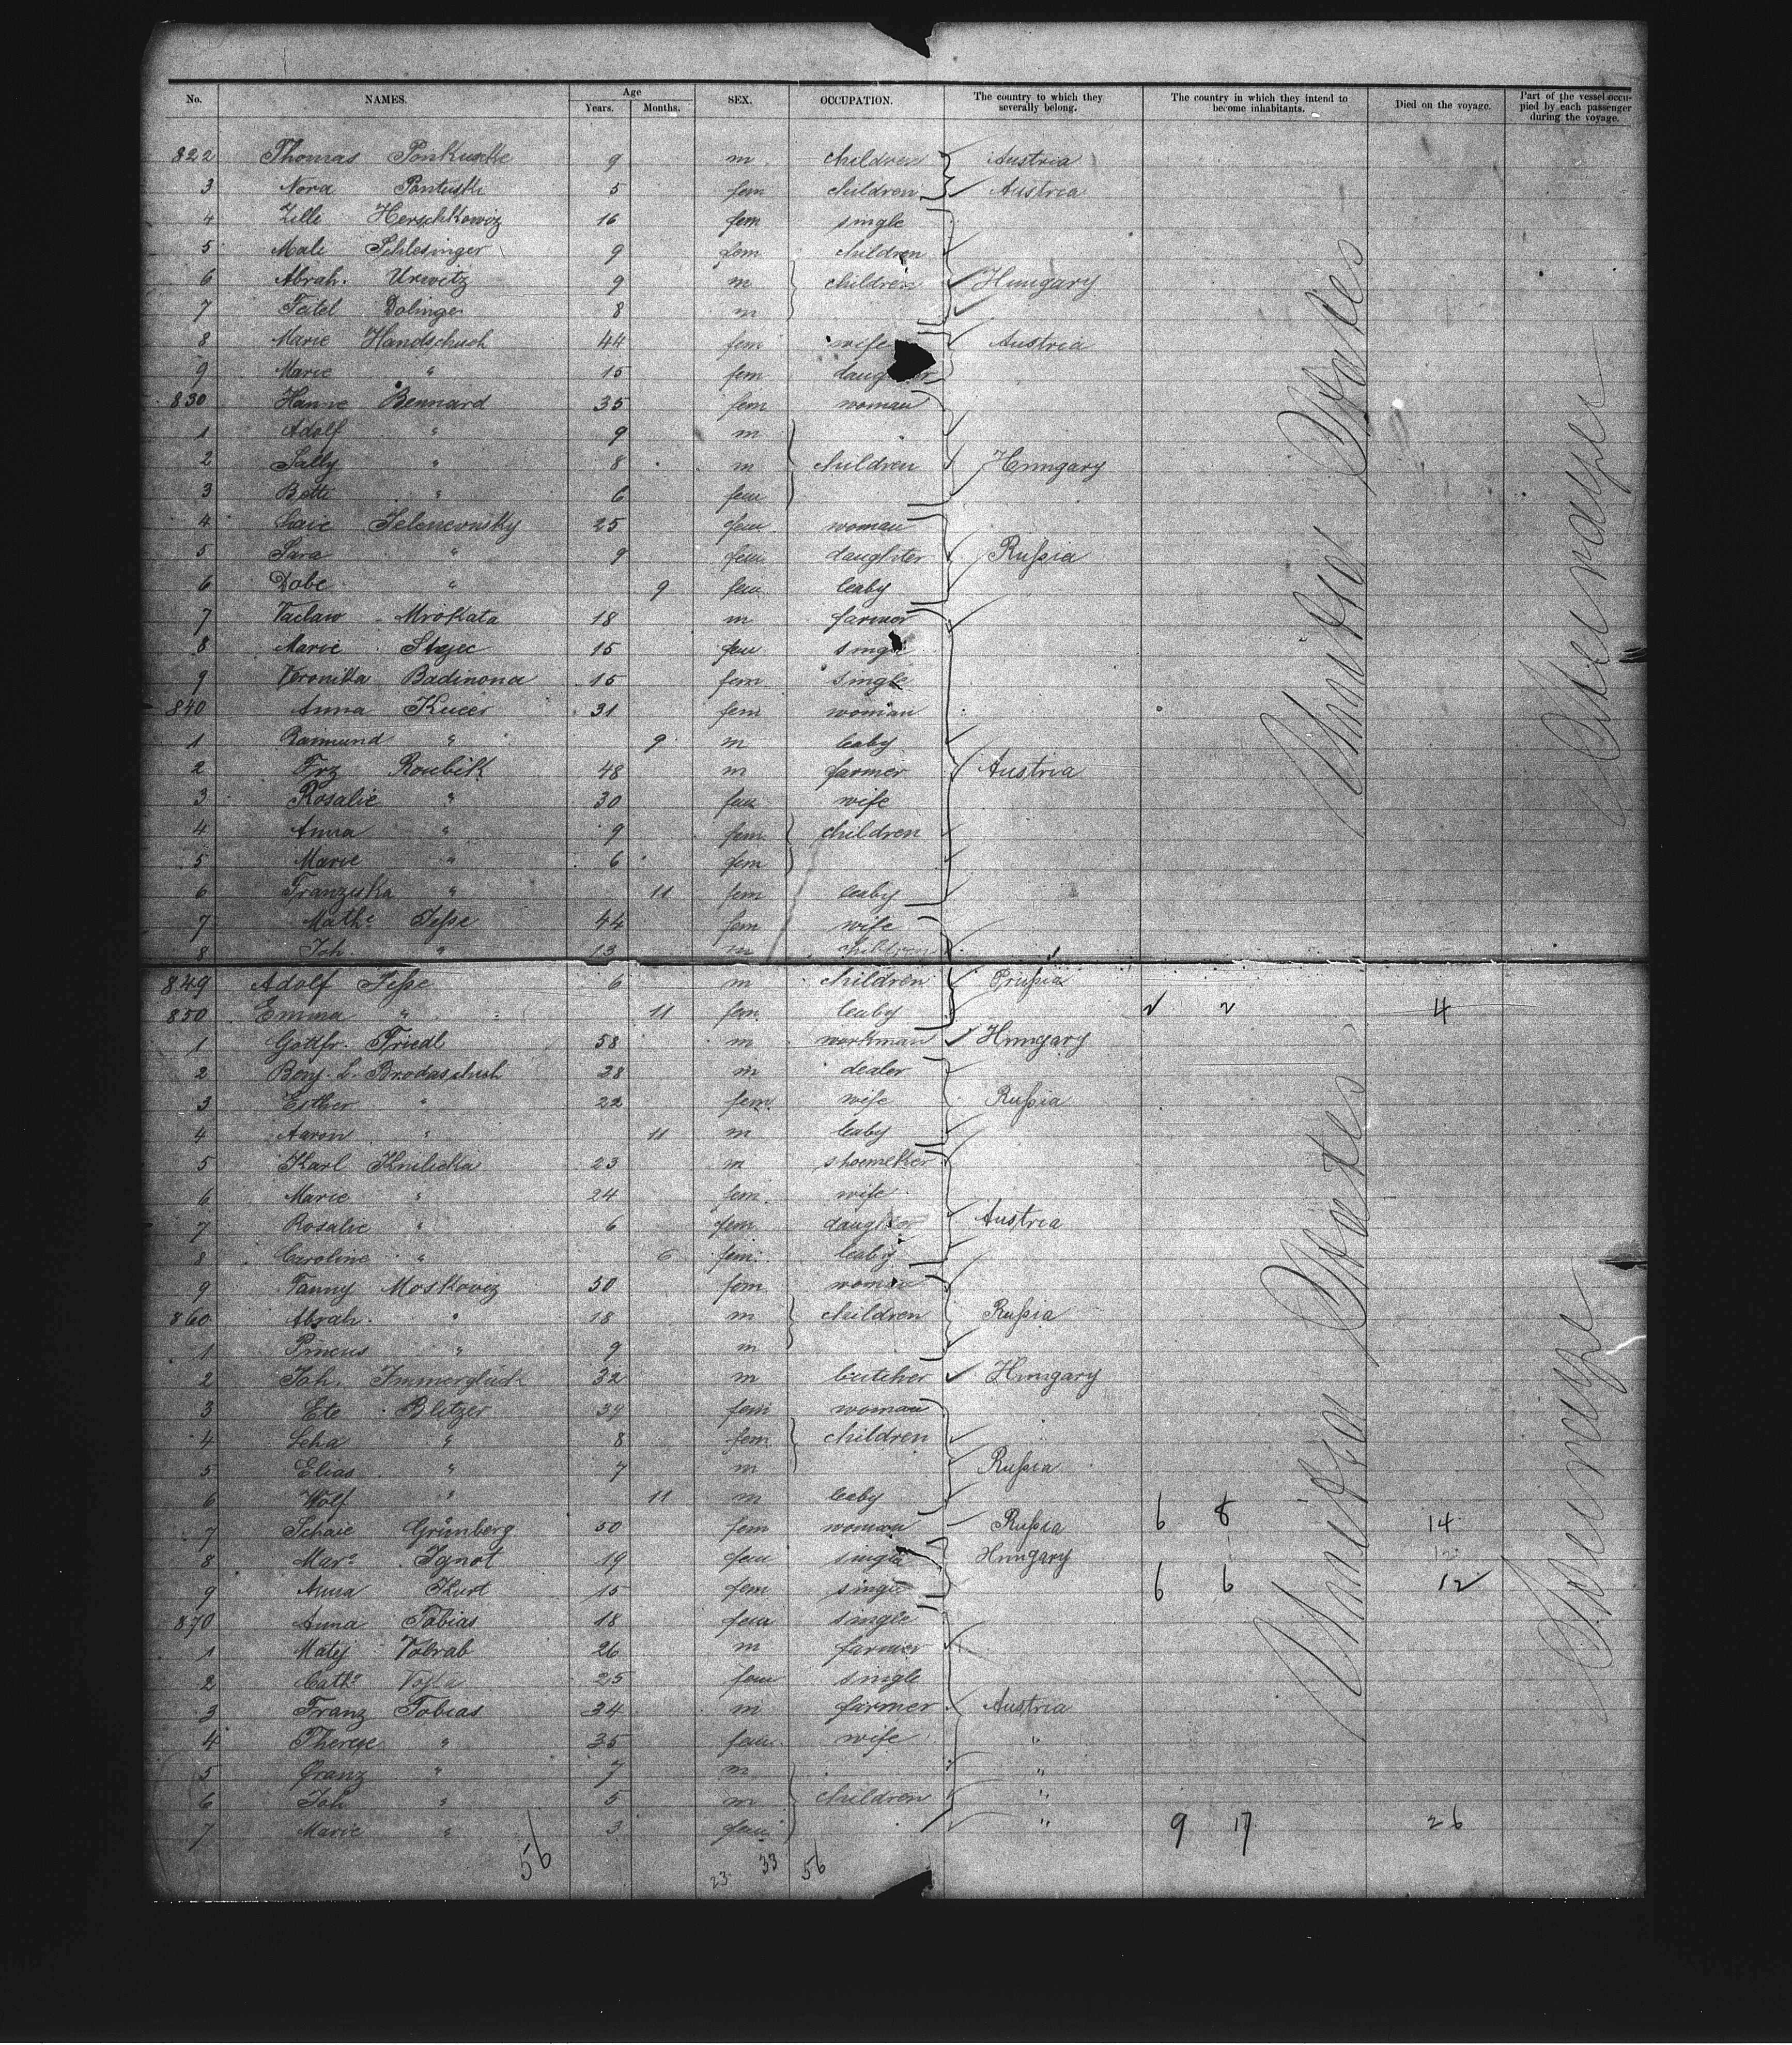 No. NAMES. Age Years. Months. SEX. OCCUPATION. The country to which they severally belong. The country in which they intend to become inhabitants. Died on the voyage. Part of the vessel occupied by each passenger during the voyage.
822 Thomas 9 m children Austria
3 Nora 5 fem children Austria
4 Zilli Herschkowiz 16 fem single
5 Mali Schlesinger 9 fem children
6 Abrah. Urwitz 9 m children Hungary
7 Feitel Dolinger 8 m
8 Marie Handschuch 44 fem wife Austria
9 Marie " 15 fem daughter
830 Hanne Bennard 35 fem woman
1 Adolf " 9 m
2 Sally " 8 m children Hungary
3 Betti " 6 fem
4 25 fem woman
5 Sara " 9 fem daughter Rußia
6 Dobe " 9 fem baby
7 Vaclaw Mrokata 18 m farmer
8 Marie 15 fem single
9 Veronika Badinona 15 fem single
840 Anna Kucer 31 fem woman
1 Raimund " 9 m baby
2 Frz Roubik 48 m farmer Austria
3 Rosalie " 30 fem wife
4 Anna " 9 fem children
5 Marie " 6 fem
6 Franziska " 11 fem baby
7 Mathe 44 fem wife
8 Joh. " 13 m children
849 Adolf 6 m children Prußia
850 Emma " 11 fem baby 2 2 4
1 Gottfr. Friedl 58 m workman Hungary
2 Benj. L. 28 m dealer
3 Esther " 22 fem. wife Rußia
4 Aaron " 11 m baby
5 Karl Knilicka 23 m shoemker
6 Marie " 24 fem. wife
7 Rosalie " 6 fem daughter Austria
8 Caroline " 6 fem. baby
9 Fanny Moskowiz 50 fem woman
860 Abrah. " 18 m children Rußia
1 Pincus " 9 m
2 Joh. Immerglück 32 m butcher Hungary
3 Ete Blitzer 39 fem woman
4 " 8 fem children
5 Elias " 7 m Rußia
6 Wolf " 11 m baby
7 Schaie Grünberg 50 fem woman Rußia 6 8 14
8 Mare Ignot 19 fem single Hungary
9 Anna Kurt 15 fem single 6 6 12
870 Anna Tobias 18 fem single
1 Matej 26 m farmer
2 Cathe 25 fem single
3 Franz Tobias 34 m farmer Austria
4 Therese " 35 fem wife "
5 Franz " 7 m "
6 Joh " 5 m children "
7 Marie " 3 fem " 9 17 26
56 23 33 56
United States
Steerage
United States
Steerage